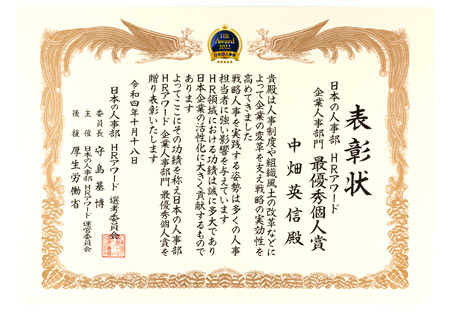 HR
Award
2022
日本の人事部
表彰状
日本の人事部 HRアワード
企業人事部門 最優秀個人賞
中畑英信殿
貴殿は人事制度や組織風土の改革などに
よって企業の変革を支え戦略の実効性を
高めてきました
戦略人事を実践する姿勢は多くの人事
担当者に強い影響を与えています
HR領域における功績は誠に多大であり
日本企業の活性化に大きく貢献するもので
あります
よってここにその功績を称え日本の人事部
HRアワード 企業人事部門 最優秀個人賞を
贈り表彰いたします
令和四年十月十八日
日本の人事部 HRアワード 選考委員会
委員長 守島基博
主催 日本の人事部 HRアワード 運営委員会
後援 厚生労働省